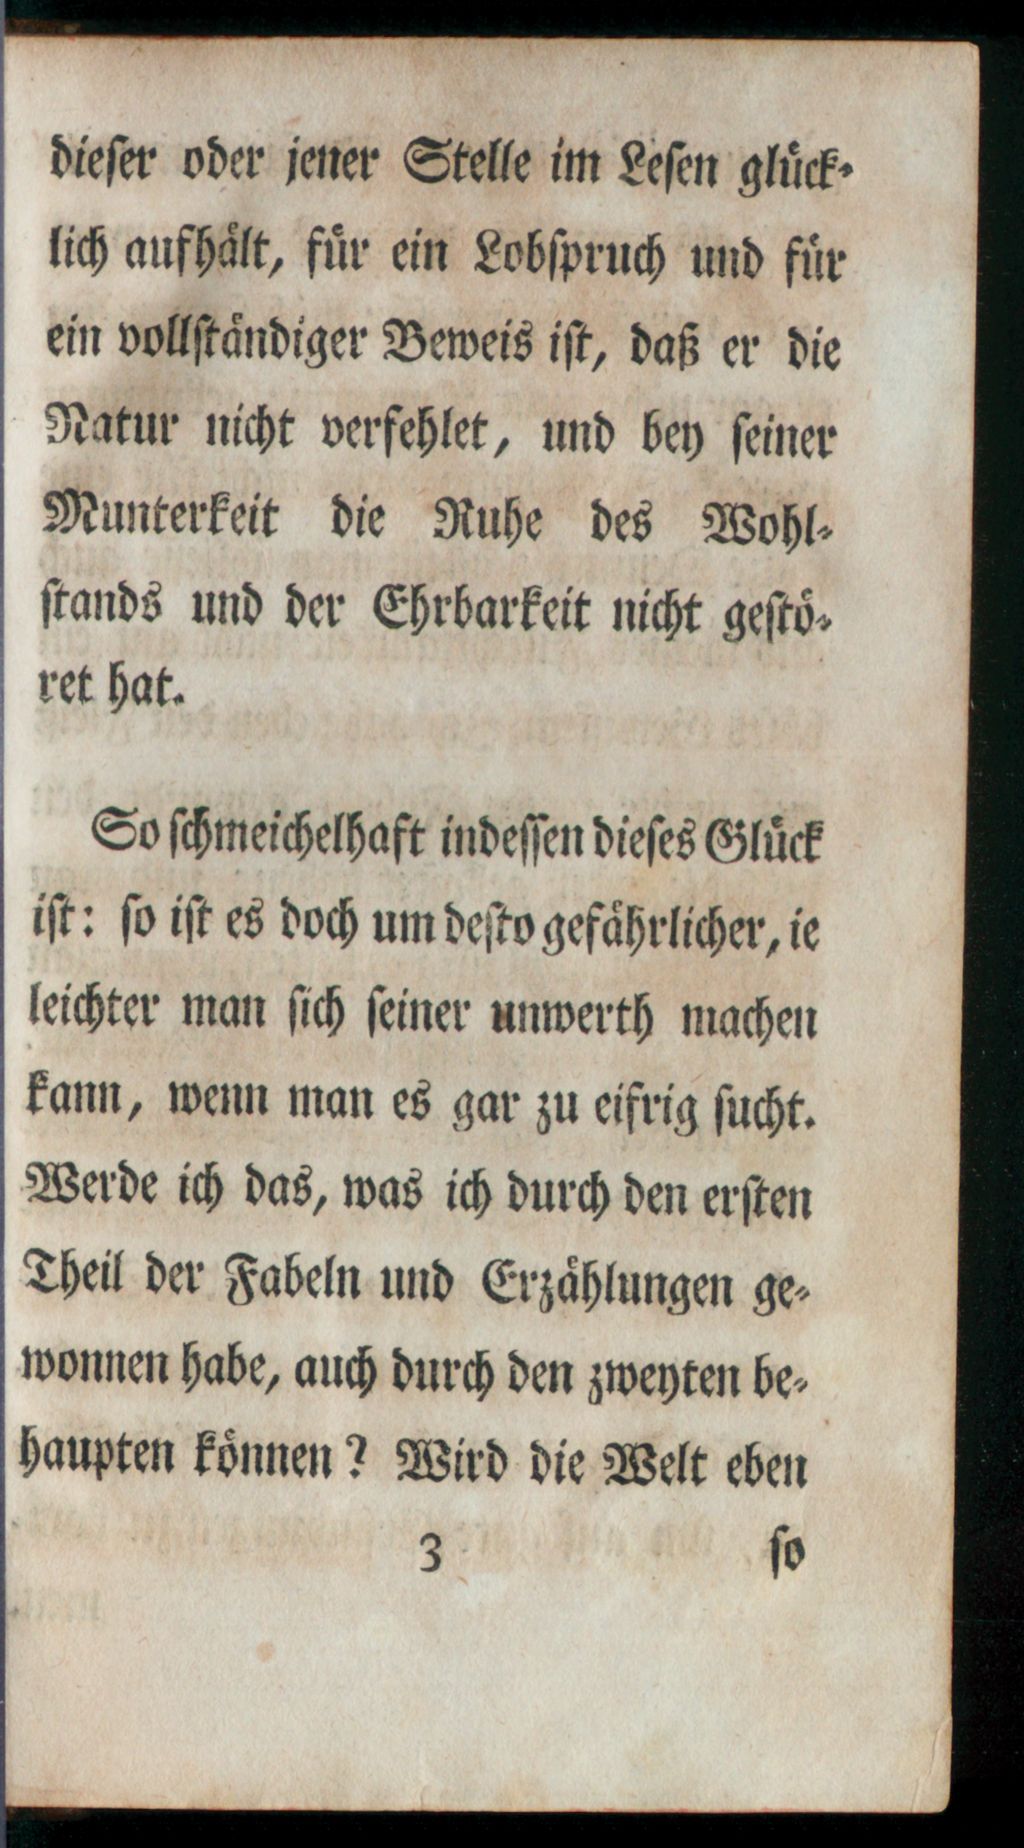 dieser oder jener Stelle im Lesen glück-
lich aufhält, für ein Lobspruch und für
ein vollständiger Beweis ist, daß er die
Natur nicht verfehlet, und bey seiner
Munterkeit die Ruhe des Wohl-
stands und der Ehrbarkeit nicht gestö-
ret hat.
So schmeichelhaft indessen dieses Glück
ist: so ist es doch um desto gefährlicher, ie
leichter man sich seiner unwerth machen
kann, wenn man es gar zu eifrig sucht.
Werde ich das, was ich durch den ersten
Theil der Fabeln und Erzählungen ge-
wonnen habe, auch durch den zweyten be-
haupten können? Wird die Welt eben
3 so